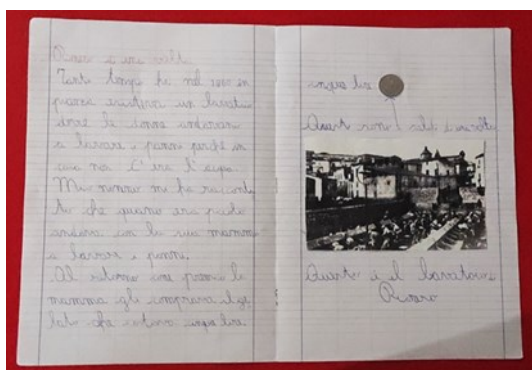 Tanti tempi fa nel 1900 in
piazza esisteva un lavatoio
dove le donne andavano
a lavare i panni perché in
casa non c'era l'acqua.
Mio nonno mi ha racconta
to che quano era piccolo
andava con la sua mamma
a lavare i panni.
Al ritorno come premio la
mamma gli comprava il ge
lato che costava cinque lire.
cinque lire
Questi sono i soldi di una volta
Questo è il lavatoio